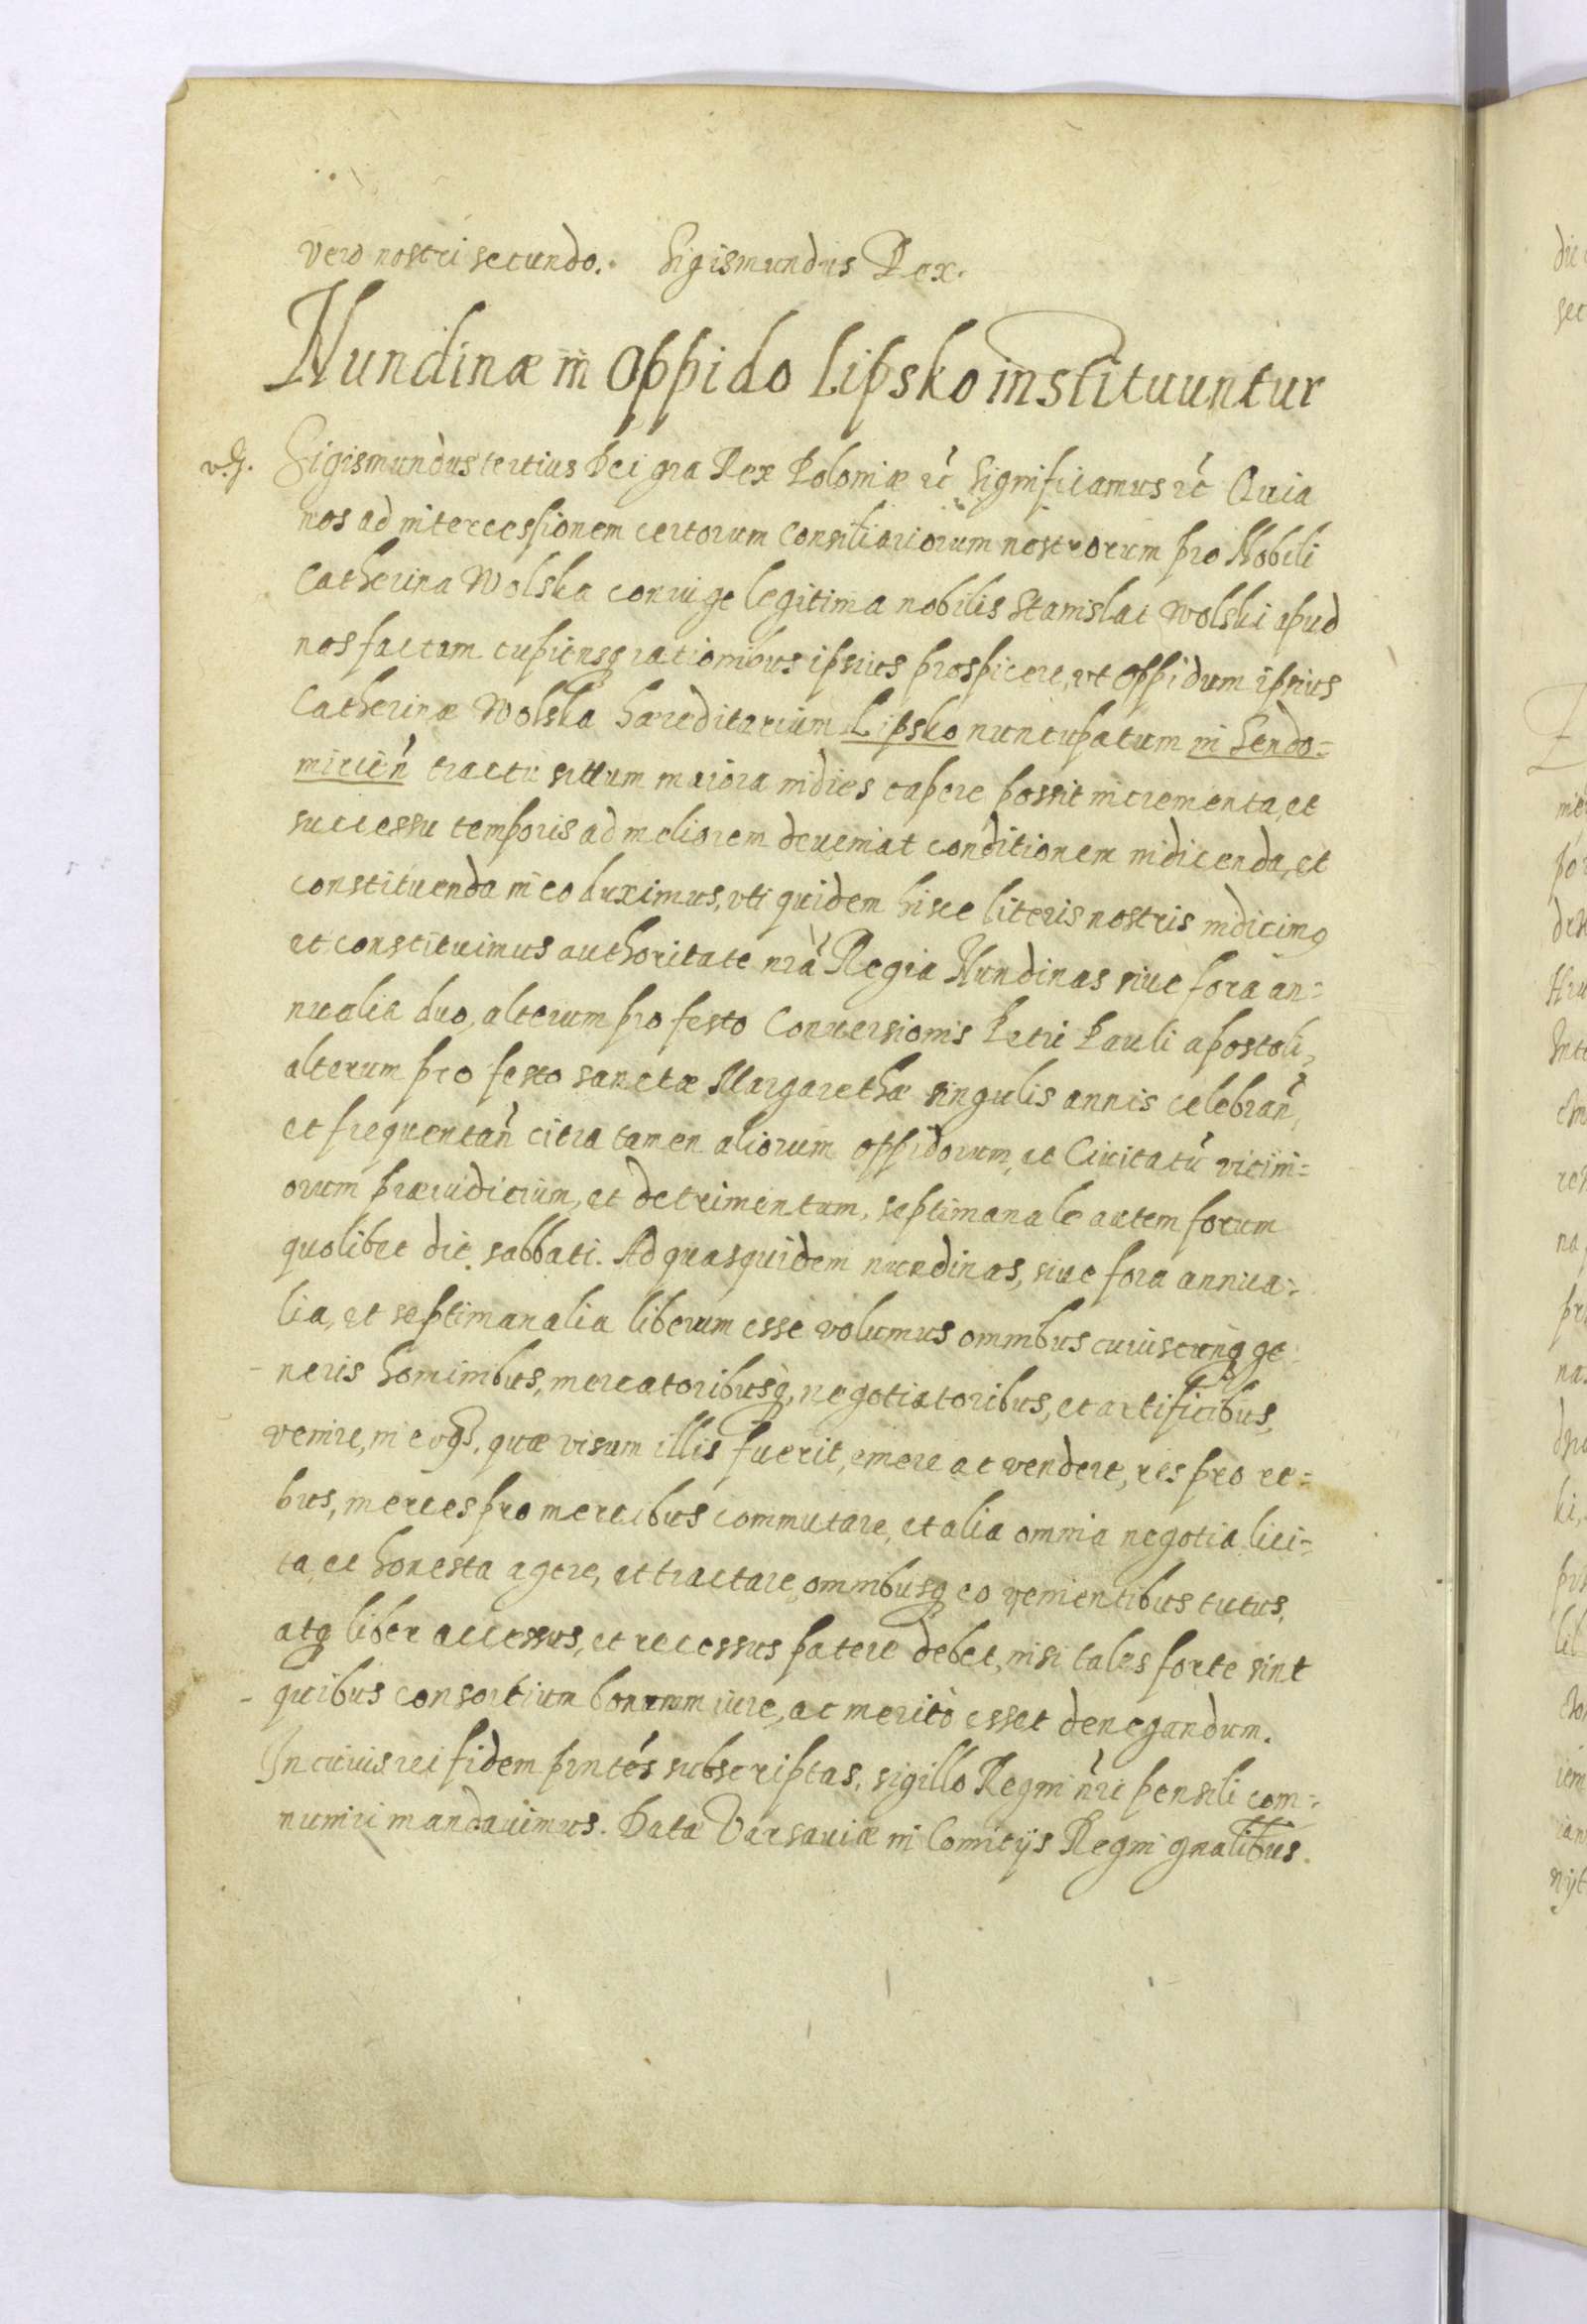 vero nostri secundo. Sigismundus Rex.
Nundinæ in Oppido Lipsko instituuntur
Sigismundus tertius Dei gra Rex Poloniæ ꝛc̃ Significamus ꝛc̃ Quia
nos ad intercessionem certorum Consiliariorum nostrorum pro Nobili
Catherina Wolska coniuge legitima nobilis Stanislai Wolski apud
nos factam cupiensq rationibus ipsius prospicere, vt oppidum ipsius
Catherinæ Wolska hæreditarium Lipsko nuncupatum in Sendo=
mirień tractu situm maiora indies capere possit incrementa, et
successu temporis ad meliorem deueniat conditionem indicenda, et
constituenda in eo duximus, vti quidem hisce literis nostris indicimq
et constituimus authoritate nrã Regia Nundinas siue fora an=
nualia duo, alterum pro festo Conuersionis Petri Pauli apostoli,
alterum pro festo sanctæ Margarethæ singulis annis celebrañ,
et frequentañ citra tamen aliorum oppidorum, et Ciuitatũ vicini=
orum præiudicium, et detrimentum, septimanale autem forum
quolibet die sabbati. Ad quas quidem nundinas, siue fora annua=
lia, et septimanalia liberum esse volumus omnibus cuiuscunq ge
neris hominibus, mercatoribusq, negotiatoribus, et artificibus,
venire, in eoqs, quæ visum illis fuerit, emere ac vendere, res pro re=
bus, merces pro mercibus commutare, et alia omnia negotia lici=
ta, et honesta agere, et tractare, omnibusq eo venientibus tutus,
atq liber accessus, et recessus patere debet, nisi tales forte sint
quibus consortium bonorum iure, ac meritò esset denegandum.
In cuius rei fidem pntés subscriptas, sigillo Regni nr̃i pensili com=
muniri mandauimus. Data Varsauiæ in Comitijs Regni gnalibus.